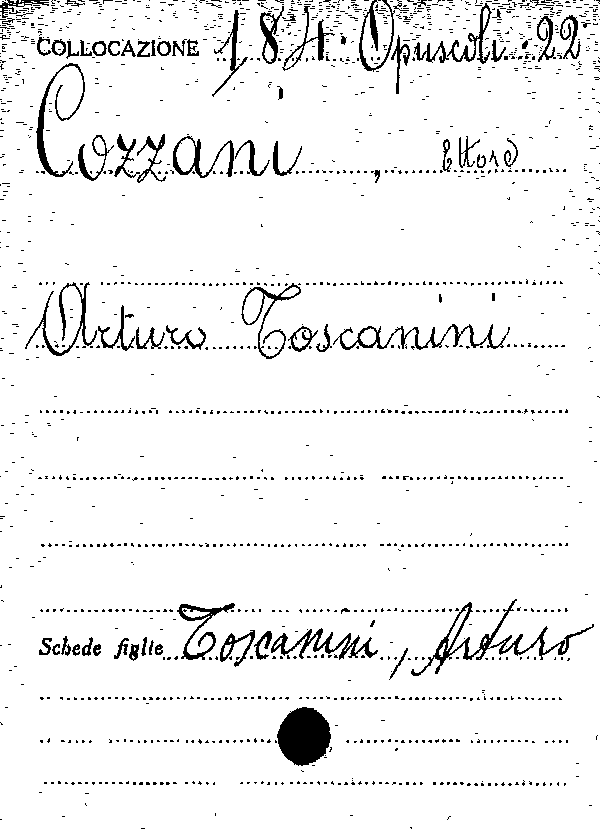 COLLOCAZIONE 184. Opuscoli. 22
Cozzani, Ettore
Arturo Toscanini
Schede figlie Toscanini, Arturo